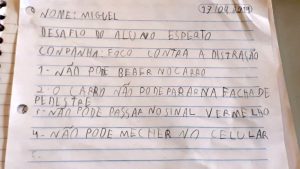 NOME: MIGUEL
DESAFIO DO ALUNO ESPERTO
COMPANHA: FOCO CONTRA A DISTRAÇÃO
1- NÃO PODE BEBER NO CARRO
2- O CARRO NÃO PODE PARAR NA FACHA DE
PEDESTRE
3- NÃO PODE PASSAR NO SINAL VERMELHO
4- NÃO PODE MECHER NO CELULAR